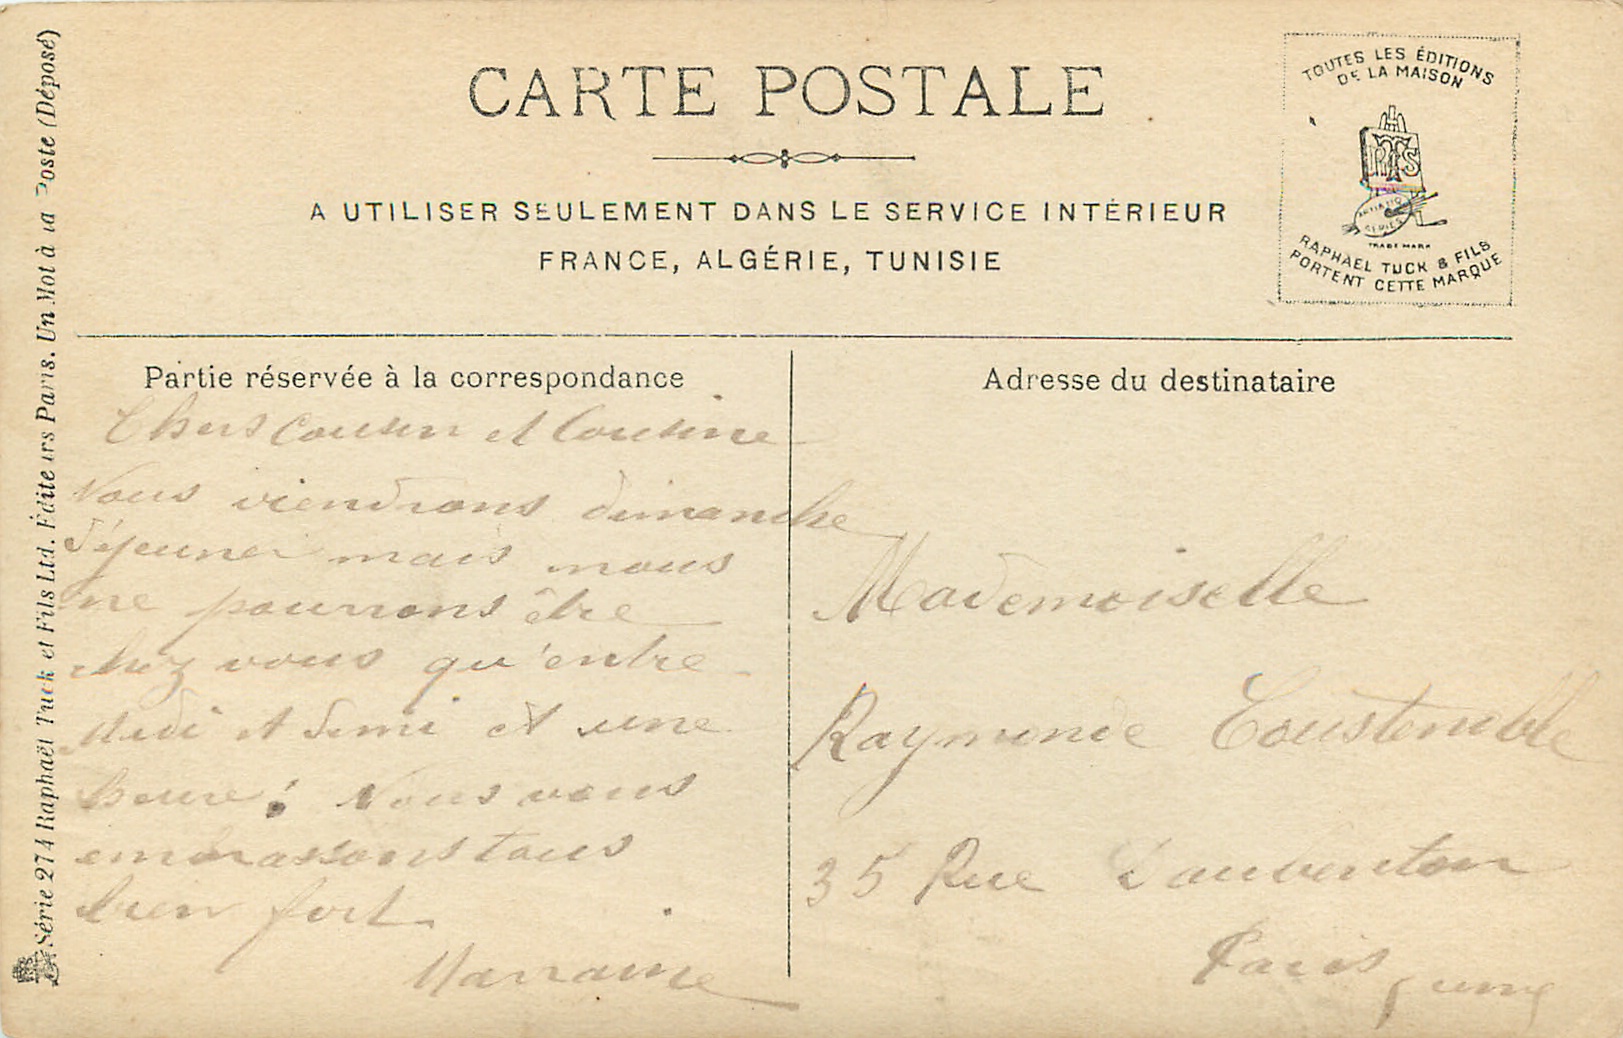 CARTE POSTALE
A UTILISER SEULEMENT DANS LE SERVICE INTÉRIEUR
FRANCE, ALGÉRIE, TUNISIE
TOUTES LES ÉDITIONS
DE LA MAISON
ARTISTIC
SERIES
TRADE MARK
RAPHAEL TUCK & FILS
PORTENT CETTE MARQUE
Série 274 Raphaël Tuck et Fils Ltd. Éditeurs Paris. Un Mot à la Poste (Déposé)
Partie réservée à la correspondance
Chers Cousin et Cousine
Nous viendrons dimanche
déjeuner mais nous
ne pourrons être
chez vous qu'entre
Midi et demi et une
heure! Nous vous
embrassons tous
bien fort.
Marraine
Adresse du destinataire
Mademoiselle
Raymonde Coustenoble
35 Rue Daubenton
Paris